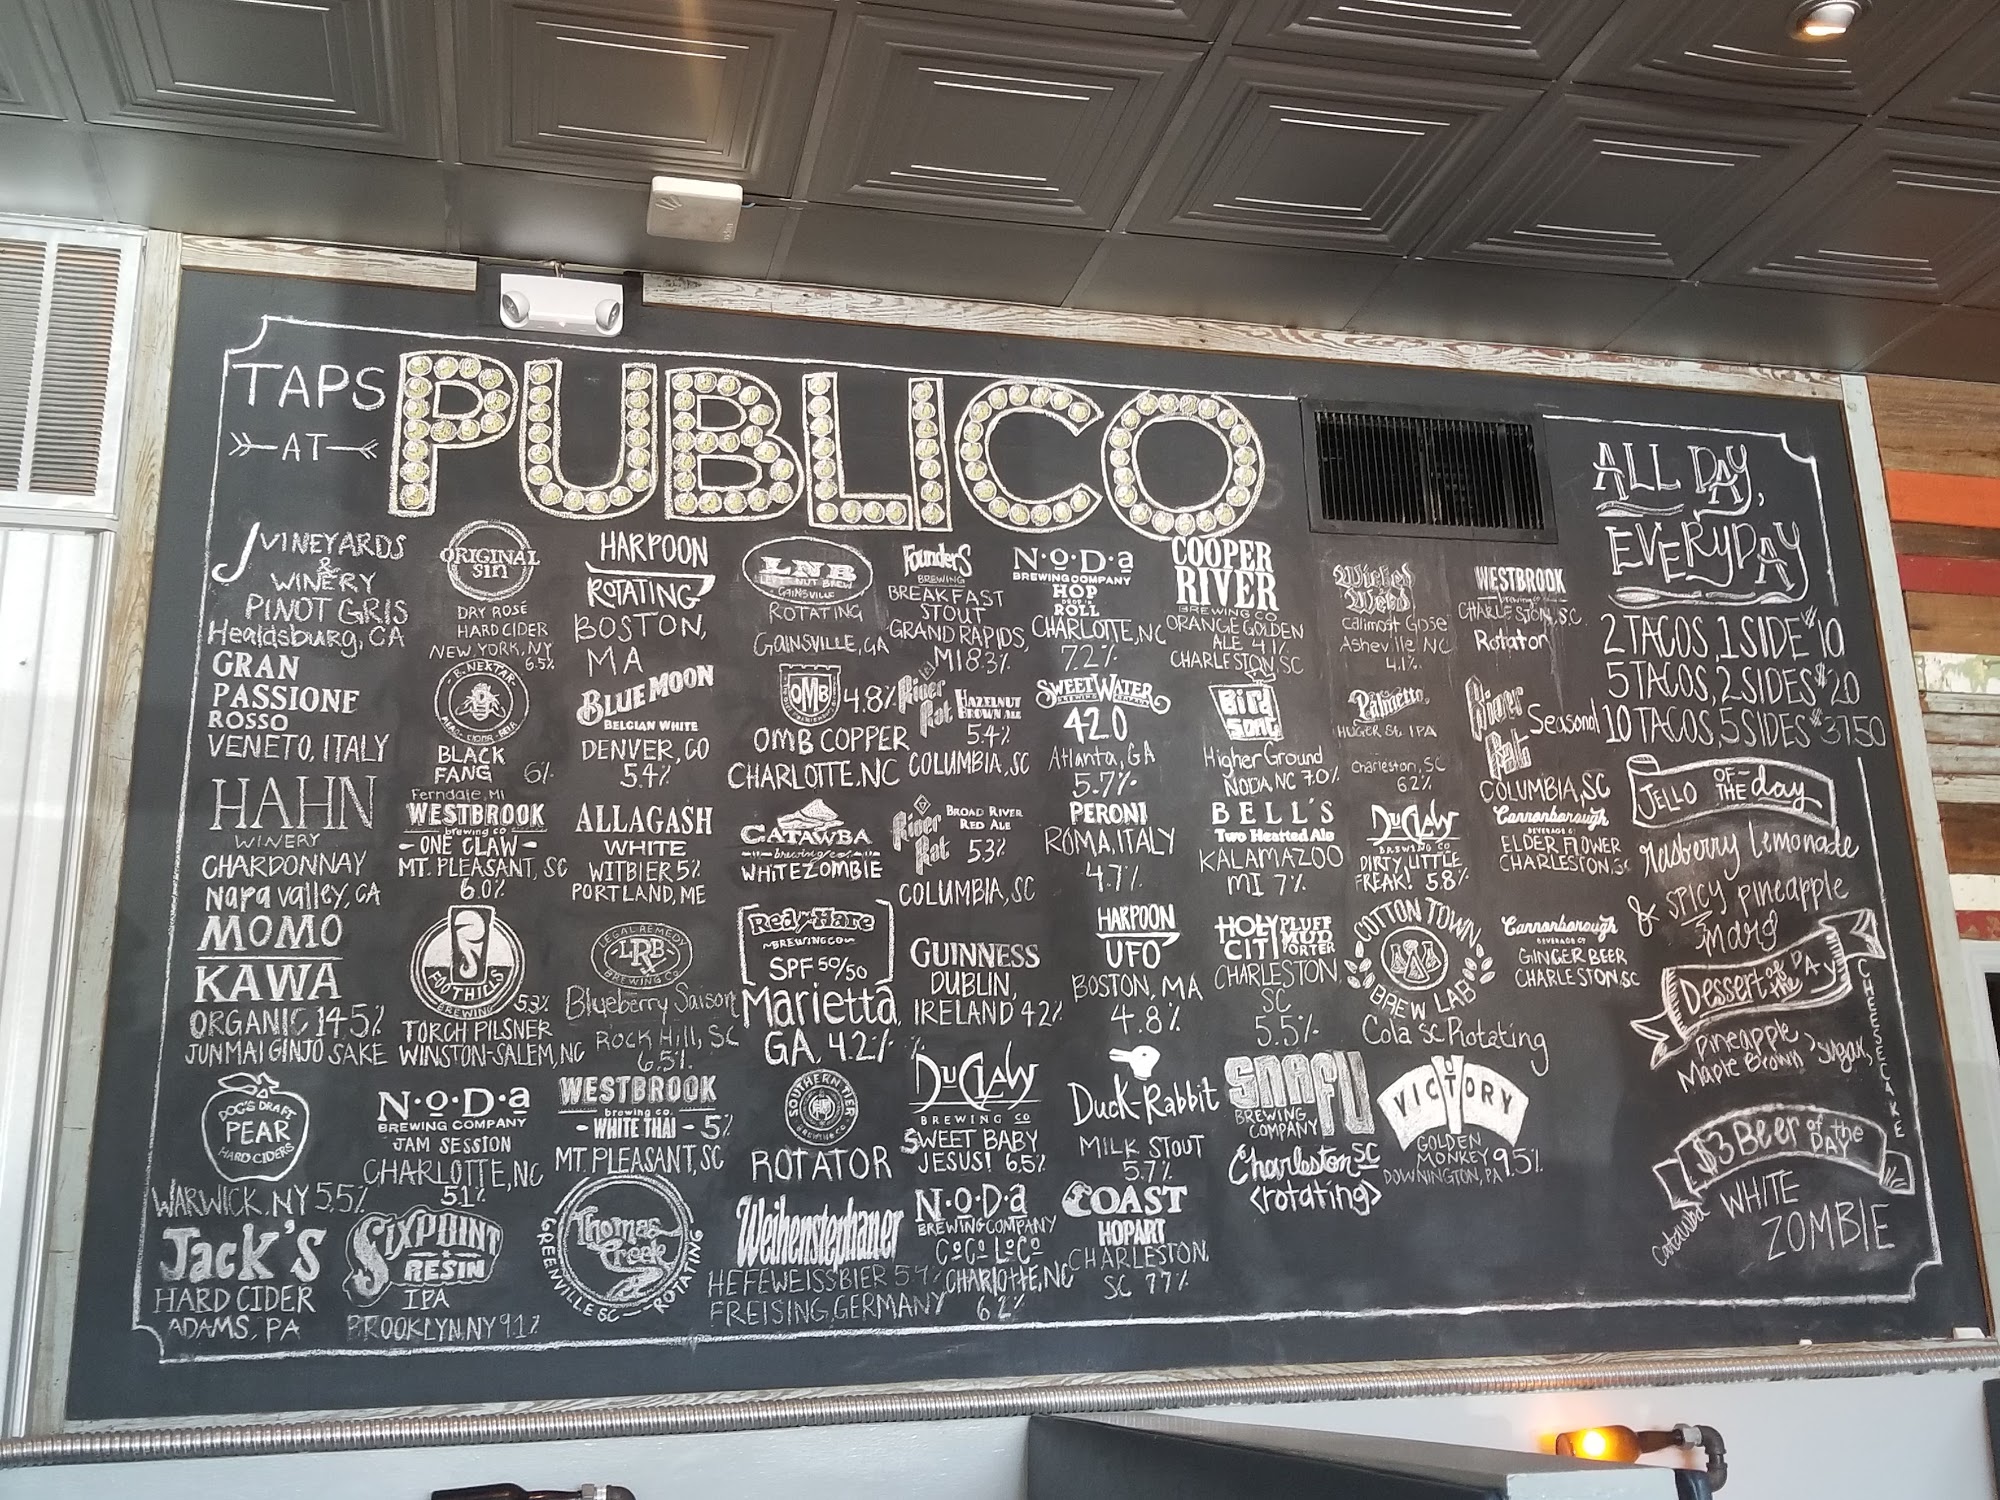 TAPS
AT
PUBLICO
J VINEYARDS
&
WINERY
PINOT GRIS
Healdsburg, CA
GRAN
PASSIONE
ROSSO
VENETO, ITALY
HAHN
WINERY
CHARDONNAY
Napa valley, CA
MOMO
KAWA
ORGANIC 14.5%
JUNMAI GINJO SAKE
DOC'S DRAFT
PEAR
HARD CIDERS
WARWICK, NY 5.5%
Jack's
HARD CIDER
ADAMS, PA
ORIGINAL
Sin
DRY ROSÉ
HARD CIDER
NEW YORK, NY
6.5%
B. NEKTAR
MEAD - CIDER - BEER
BLACK
FANG 6%
Ferndale, MI
WESTBROOK
brewing co
- ONE CLAW -
MT. PLEASANT, SC
6.0%
FOOTHILLS
BREWING 5.3%
TORCH PILSNER
WINSTON-SALEM, NC
N·o·D·a
BREWING COMPANY
JAM SESSION
CHARLOTTE, NC
5.1%
SIXPOINT
RESIN
IPA
BROOKLYN, NY 9.1%
HARPOON
ROTATING
BOSTON,
MA
BLUE MOON
BELGIAN WHITE
DENVER, CO
5.4%
ALLAGASH
WHITE
WITBIER 5%
PORTLAND, ME
LEGAL REMEDY
LRB
BREWING Co
Blueberry Saison
ROCK HILL, SC
6.5%
WESTBROOK
brewing co.
- WHITE THAI - 5%
MT. PLEASANT, SC
Thomas
Creek
GREENVILLE SC - ROTATING
LNB
LEFT NUT BREW
GAINSVILLE
ROTATING
GAINSVILLE, GA
OMB 4.8%
OMB COPPER
CHARLOTTE, NC
CATAWBA
brewing co.
WHITE ZOMBIE
Red Hare
BREWING CO
SPF 50/50
Marietta,
GA, 4.2%
SOUTHERN TIER
BREWING Co
ROTATOR
Weihenstephaner
HEFEWEISSBIER 5.4%
FREISING, GERMANY
FOUNDERS
BREWING
BREAKFAST
STOUT
GRAND RAPIDS,
MI 8.3%
River
Rat
HAZELNUT
BROWN ALE
5.4%
COLUMBIA, SC
River
Rat
BROAD RIVER
RED ALE
5.3%
COLUMBIA, SC
GUINNESS
DUBLIN,
IRELAND 4.2%
DuClaw
BREWING CO
SWEET BABY
JESUS! 6.5%
N·o·D·a
BREWING COMPANY
CoCo LoCo
CHARlOTTE, NC
6.2%
N·o·D·a
BREWING COMPANY
HOP
DROP 'N
ROLL
CHARLOTTE, NC
7.2%
SWEETWATER
420
Atlanta, GA
5.7%
PERONI
ROMA, ITALY
4.7%
HARPOON
UFO
BOSTON, MA
4.8%
Duck-Rabbit
MILK STOUT
5.7%
COAST
HOPART
CHARLESTON,
SC 7.7%
COOPER
RIVER
BREWING CO
ORANGE GOLDEN
ALE 4.1%
CHARLESTON, SC
Bird
song
Higher Ground
NODA, NC 7.0%
BELL'S
Two Hearted Ale
KALAMAZOO
MI 7%
HOLY
CITY
PLUFF
MUD
PORTER
CHARLESTON,
SC
5.5%
SNAFU
BREWING
COMPANY
Charleston SC
<rotating>
Wicked
Weed
Calimost Gose
Asheville NC
4.1%
Palmetto
HUGER St. IPA
Charleston, SC
6.2%
DuClaw
BREWING CO
DIRTY, LITTLE
FREAK! 5.8%
COTTON TOWN
BREW LAB
Cola SC Rotating
VICTORY
GOLDEN
MONKEY
DOWNINGTON, PA 9.5%
WESTBROOK
brewing co
CHARLESTON, SC
Rotator
River
Rat
Seasonal
COLUMBIA, SC
Cannonborough
BEVERAGE Co
ELDER FLOWER
CHARLESTON, SC
Cannonborough
BEVERAGE Co
GINGER BEER
CHARLESTON, SC
ALL DAY,
EVERYDAY
2 TACOS, 1 SIDE $10
5 TACOS, 2 SIDES $20
10 TACOS, 5 SIDES $37.50
JELLO OF THE day
rasberry lemonade
& spicy pineapple
marg
Dessert of the DAY
pineapple
Maple Brown > sugar,
CHEESECAKE
$3 Beer of the DAY
catawba WHITE
ZOMBIE